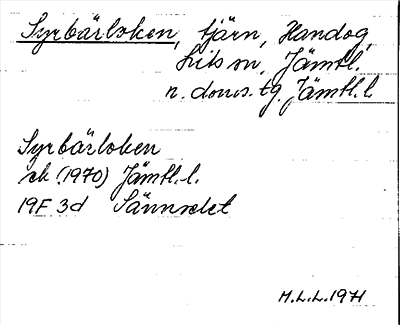 Syrbärloken, tjärn, Handog,
Lits sn, Jämtl.
n. doms. tg. Jämtl. l.
Syrbärloken
ek (1970) Jämtl. l.
19F 3d Sännsdet
H.L.L. 1971